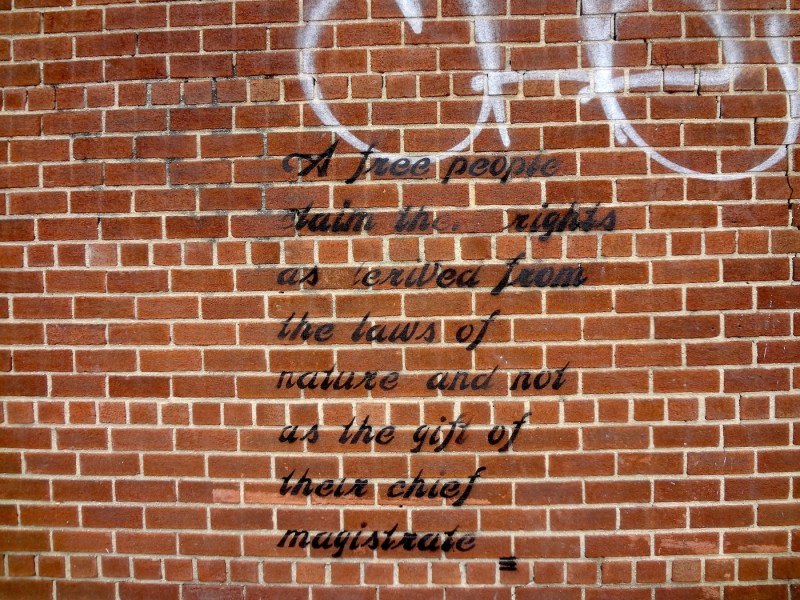 A free people
claim the. rights
as derived from
the laws of
nature and not
as the gift of
their chief
magistrate